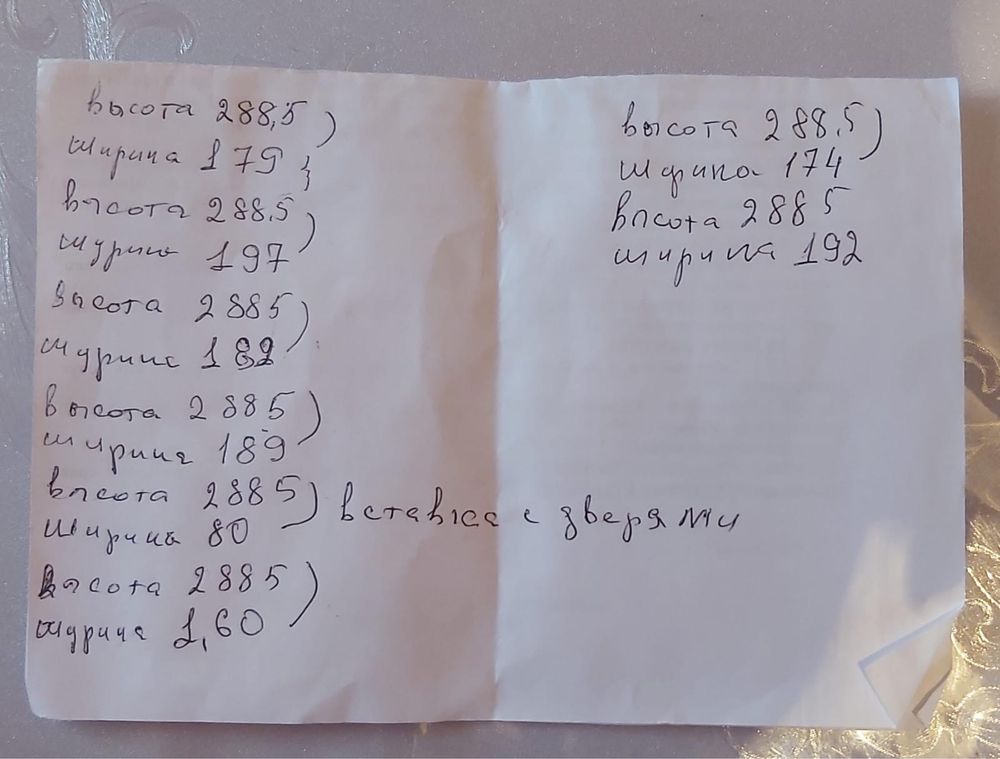 высота 288,5
ширина 179
высота 288.5
ширина 197
высота 2885
ширина 182
высота 2885
ширина 189
высота 2885
ширина 80
вставка с дверями
высота 2885
ширина 1,60
высота 288.5
ширина 174
высота 2885
ширина 192